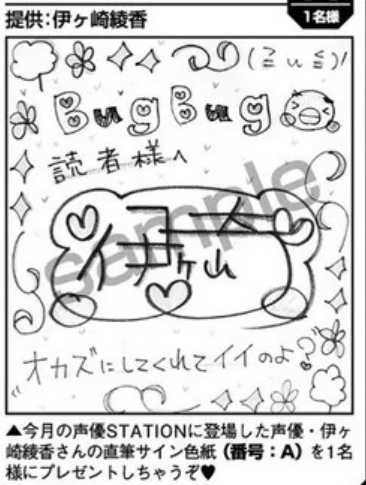 提供:伊ヶ崎綾香
1名様
(≧u≦)ﾉ
BugBug
読者様へ
sample
オカズにしてくれてイイのよ?
▲今月の声優STATIONに登場した声優・伊ヶ
崎綾香さんの直筆サイン色紙(番号:A)を1名
様にプレゼントしちゃうぞ♥